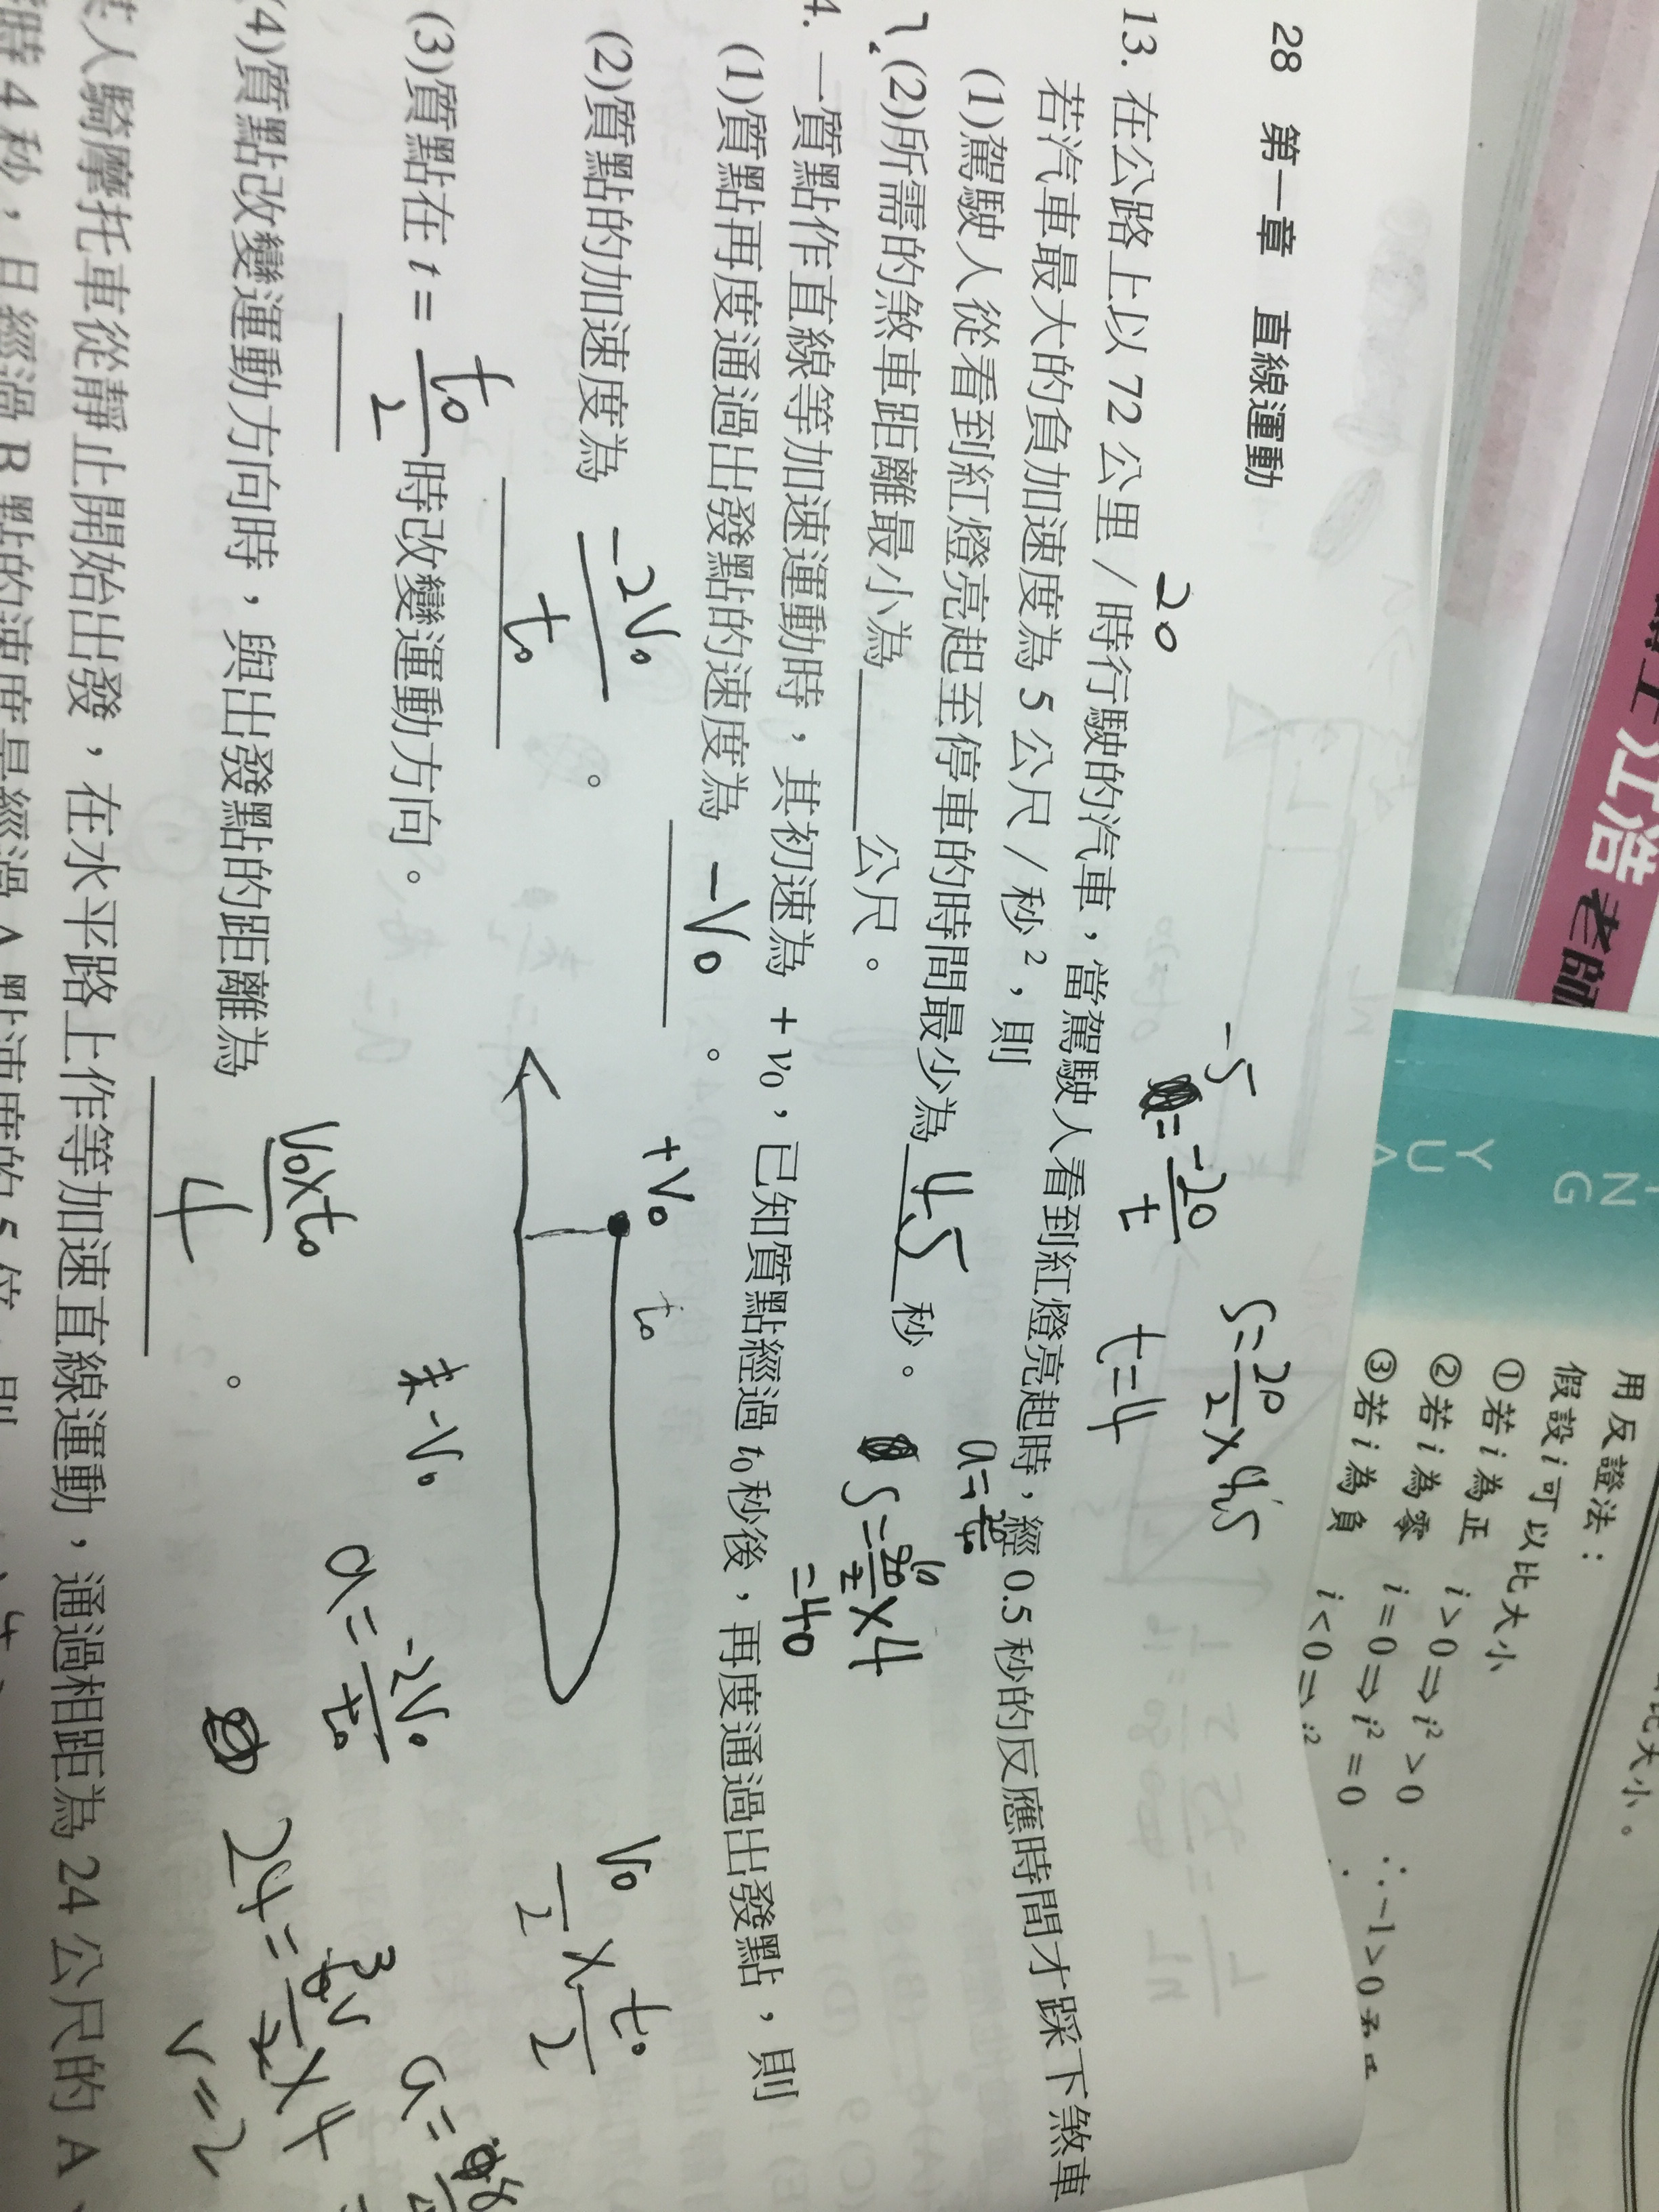 28 第一章 直線運動
20
13. 在公路上以 72 公里 / 時行駛的汽車，當駕駛人看到紅燈亮起時，經 0.5 秒的反應時間才踩下煞車
若汽車最大的負加速度為 5 公尺 / 秒²，則
(1)駕駛人從看到紅燈亮起至停車的時間最少為 4.5 秒。
?(2)所需的煞車距離最小為 公尺。
-5 = -20/t
t=4
S=20/2×4.5
S=20/2×4
=40
4. 一質點作直線等加速運動時，其初速為 + v₀，已知質點經過 t₀ 秒後，再度通過出發點，則
(1)質點再度通過出發點的速度為 -V₀ 。
(2)質點的加速度為 -2V₀/t₀ 。
(3)質點在 t = t₀/2 時改變運動方向。
(4)質點改變運動方向時，與出發點的距離為 V₀×t₀/4 。
+V₀
t₀
末-V₀
a=-2V₀/t₀
V₀/2×t₀/2
人騎摩托車從靜止開始出發，在水平路上作等加速直線運動，通過相距為 24 公尺的 A、
時 4 秒，且經過 B 點的速度是經過 A 點速度的 5 倍，則
V=2
江浩老師
YUA
NG
用反證法：
假設 i 可以比大小
①若 i 為正 i>0⇒i²>0
②若 i 為零 i=0⇒i²=0
③若 i 為負 i<0⇒i²
∴-1>0
比大小。